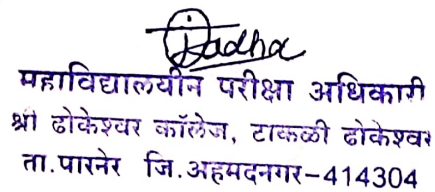 महाविद्यालयीन परीक्षा अधिकारी
श्री ढोकेश्वर कॉलेज, टाकळी ढोकेश्वर
ता.पारनेर जि.अहमदनगर-414304